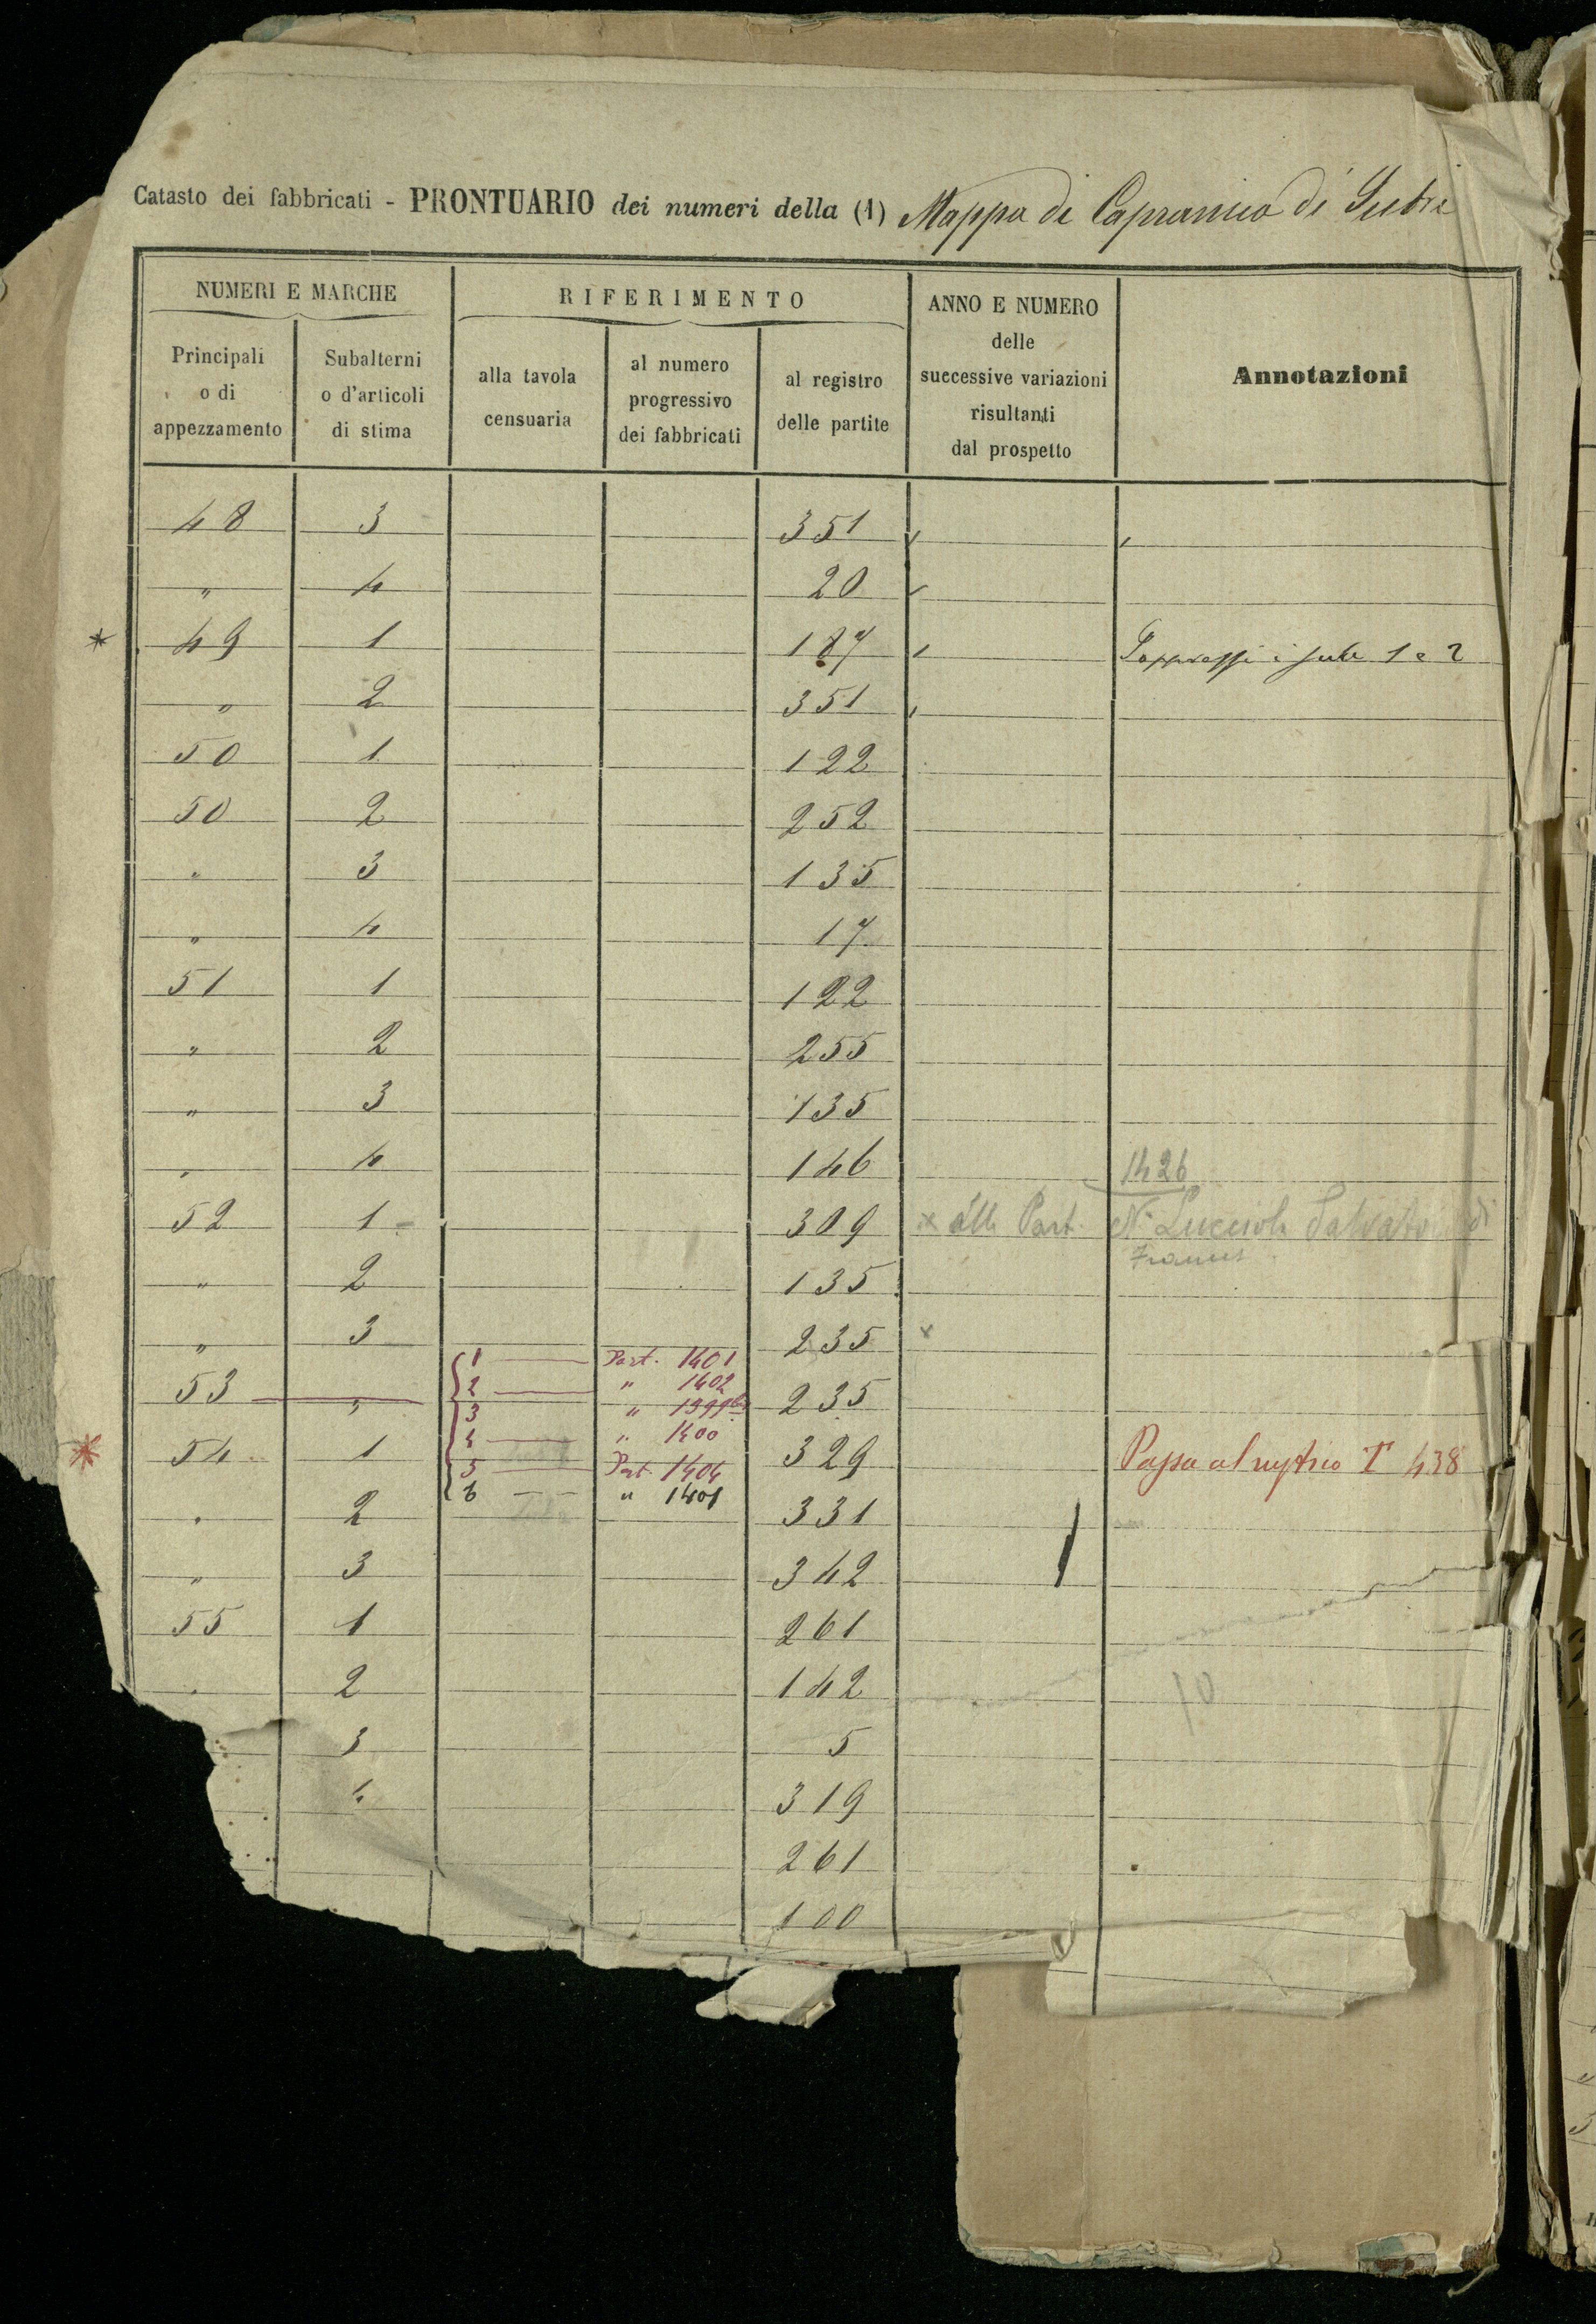 Catasto dei fabbricati - PRONTUARIO dei numeri della (1) Mappa di Capranica di Sutri
NUMERI E MARCHE
RIFERIMENTO
ANNO E NUMERO
delle
successive variazioni
risultanti
dal prospetto
Annotazioni
Principali
o di
appezzamento
Subalterni
o d'articoli
di stima
alla tavola
censuaria
al numero
progressivo
dei fabbricati
al registro
delle partite
48 3 351
" 4 20
* 49 1 187 Soppressi i sub 1 e 2
" 2 351
50 1 122
50 2 252
" 3 135
" 4 17
51 1 122
" 2 255
" 3 135
" 4 146
1426
52 1 309 x alla Part. N. Lucciola Salvatore di
Franc
" 2 135
" 3 235 x
1 Part. 1401
2 " 1402
53 " 235
3 " 1399
4 " 1400
* 54 1 329 Passa al rustico T 438
5 Part. 1404
6 " 1401
" 2 331
" 3 342
55 1 261
" 2 142
10
3 5
4 319
261
100